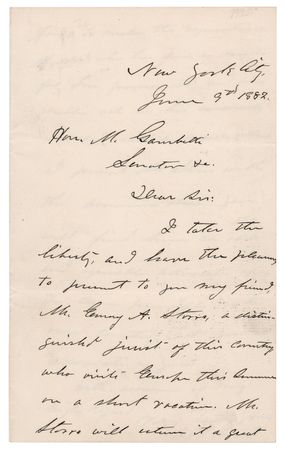 New York City,
June 9th 1882.
Hon. M. Gambetta
Senator &c.
Dear Sir:
I take the
liberty, and have the pleasure
to present to you my friend,
Mr. Emory A. Storrs, a distin
guished jurist of this country
who visits Europe this Summer
on a short vacation. Mr.
Storrs will esteem it a great